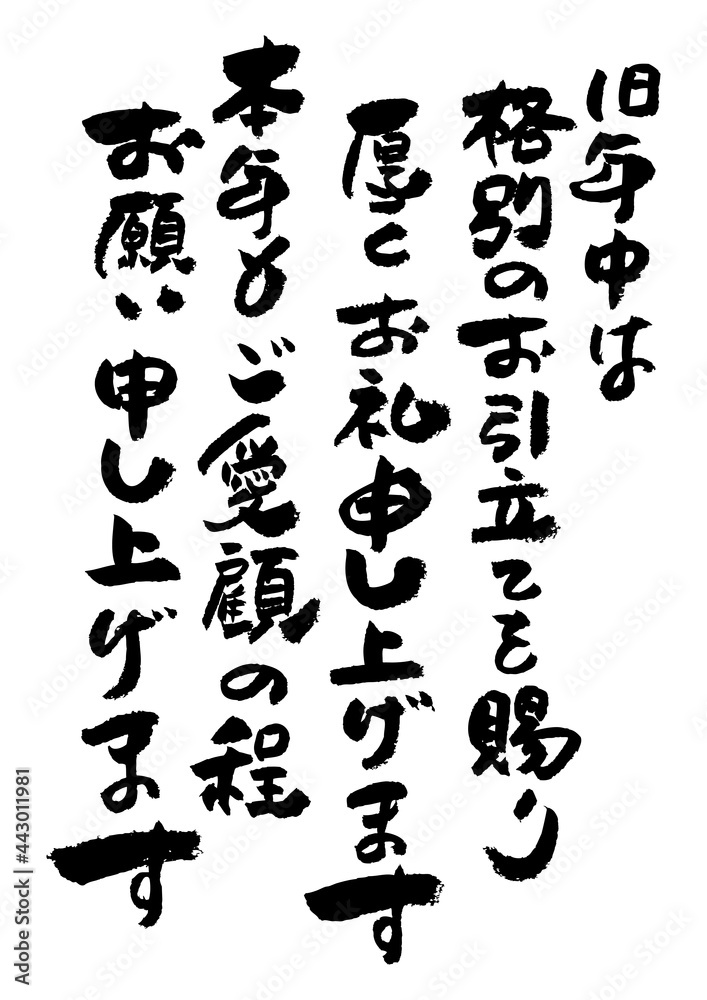 旧年中は
格別のお引立てを賜り
厚くお礼申し上げます
本年もご愛顧の程
お願い申し上げます
Adobe Stock | #443011981